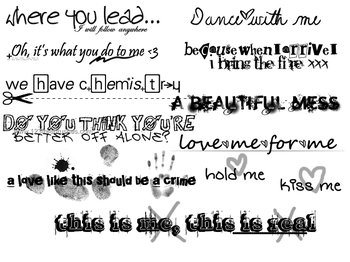 where you lead...
I will follow anywhere
Oh, it's what you do to me <3
we have c.hemis.t.r.y
DO YOU THINK YOU'RE
BETTER OFF ALONE?
a love like this should be a crime
Dance with me
because when I arrive I
i bring the fire xxx
A BEAUTIFUL MESS
love me for me
hold me
kiss me
this is me, this is real